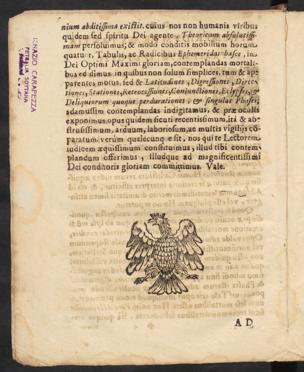 nium abditissima existit. cuius nos non humanis viribus
quidem sed spiritu Dei agente, Theoricam absolutissi-
mam persoluimus; & modo conditis mobilium horum
quatuor, Tabulis, ac Radicibus Ephemeridas hasce, in
Dei Optimi Maximi gloriam, contemplandas mortali-
bus edimus. in quibus non solum simplices, tam & ap-
parentes motus, sed & Latitudines, Digressiones, Dire-
ctiones, Stationes, Retrocessiones, Coniunctiones, Eclypses, &
Deliquiorum quoque perdurationes, & singulas Phases
adamussim contemplandas indigitamus, & præ oculis
exponimus, opus quidem sicuti recentissimum, ita & ab-
strusissimum, arduum, laboriosum, ac multis vigiliis cõ-
paratum. verùm qualecunq; sit, nos qui te Lectorem,
auditem æquissimum constituimus, illud tibi contem-
plandum offerimus, illudque ad magnificentissimi
Dei conditoris gloriam committimus. Vale.
AD
IGNAZIO CARAPEZZA
PETRALIA SOTTANA